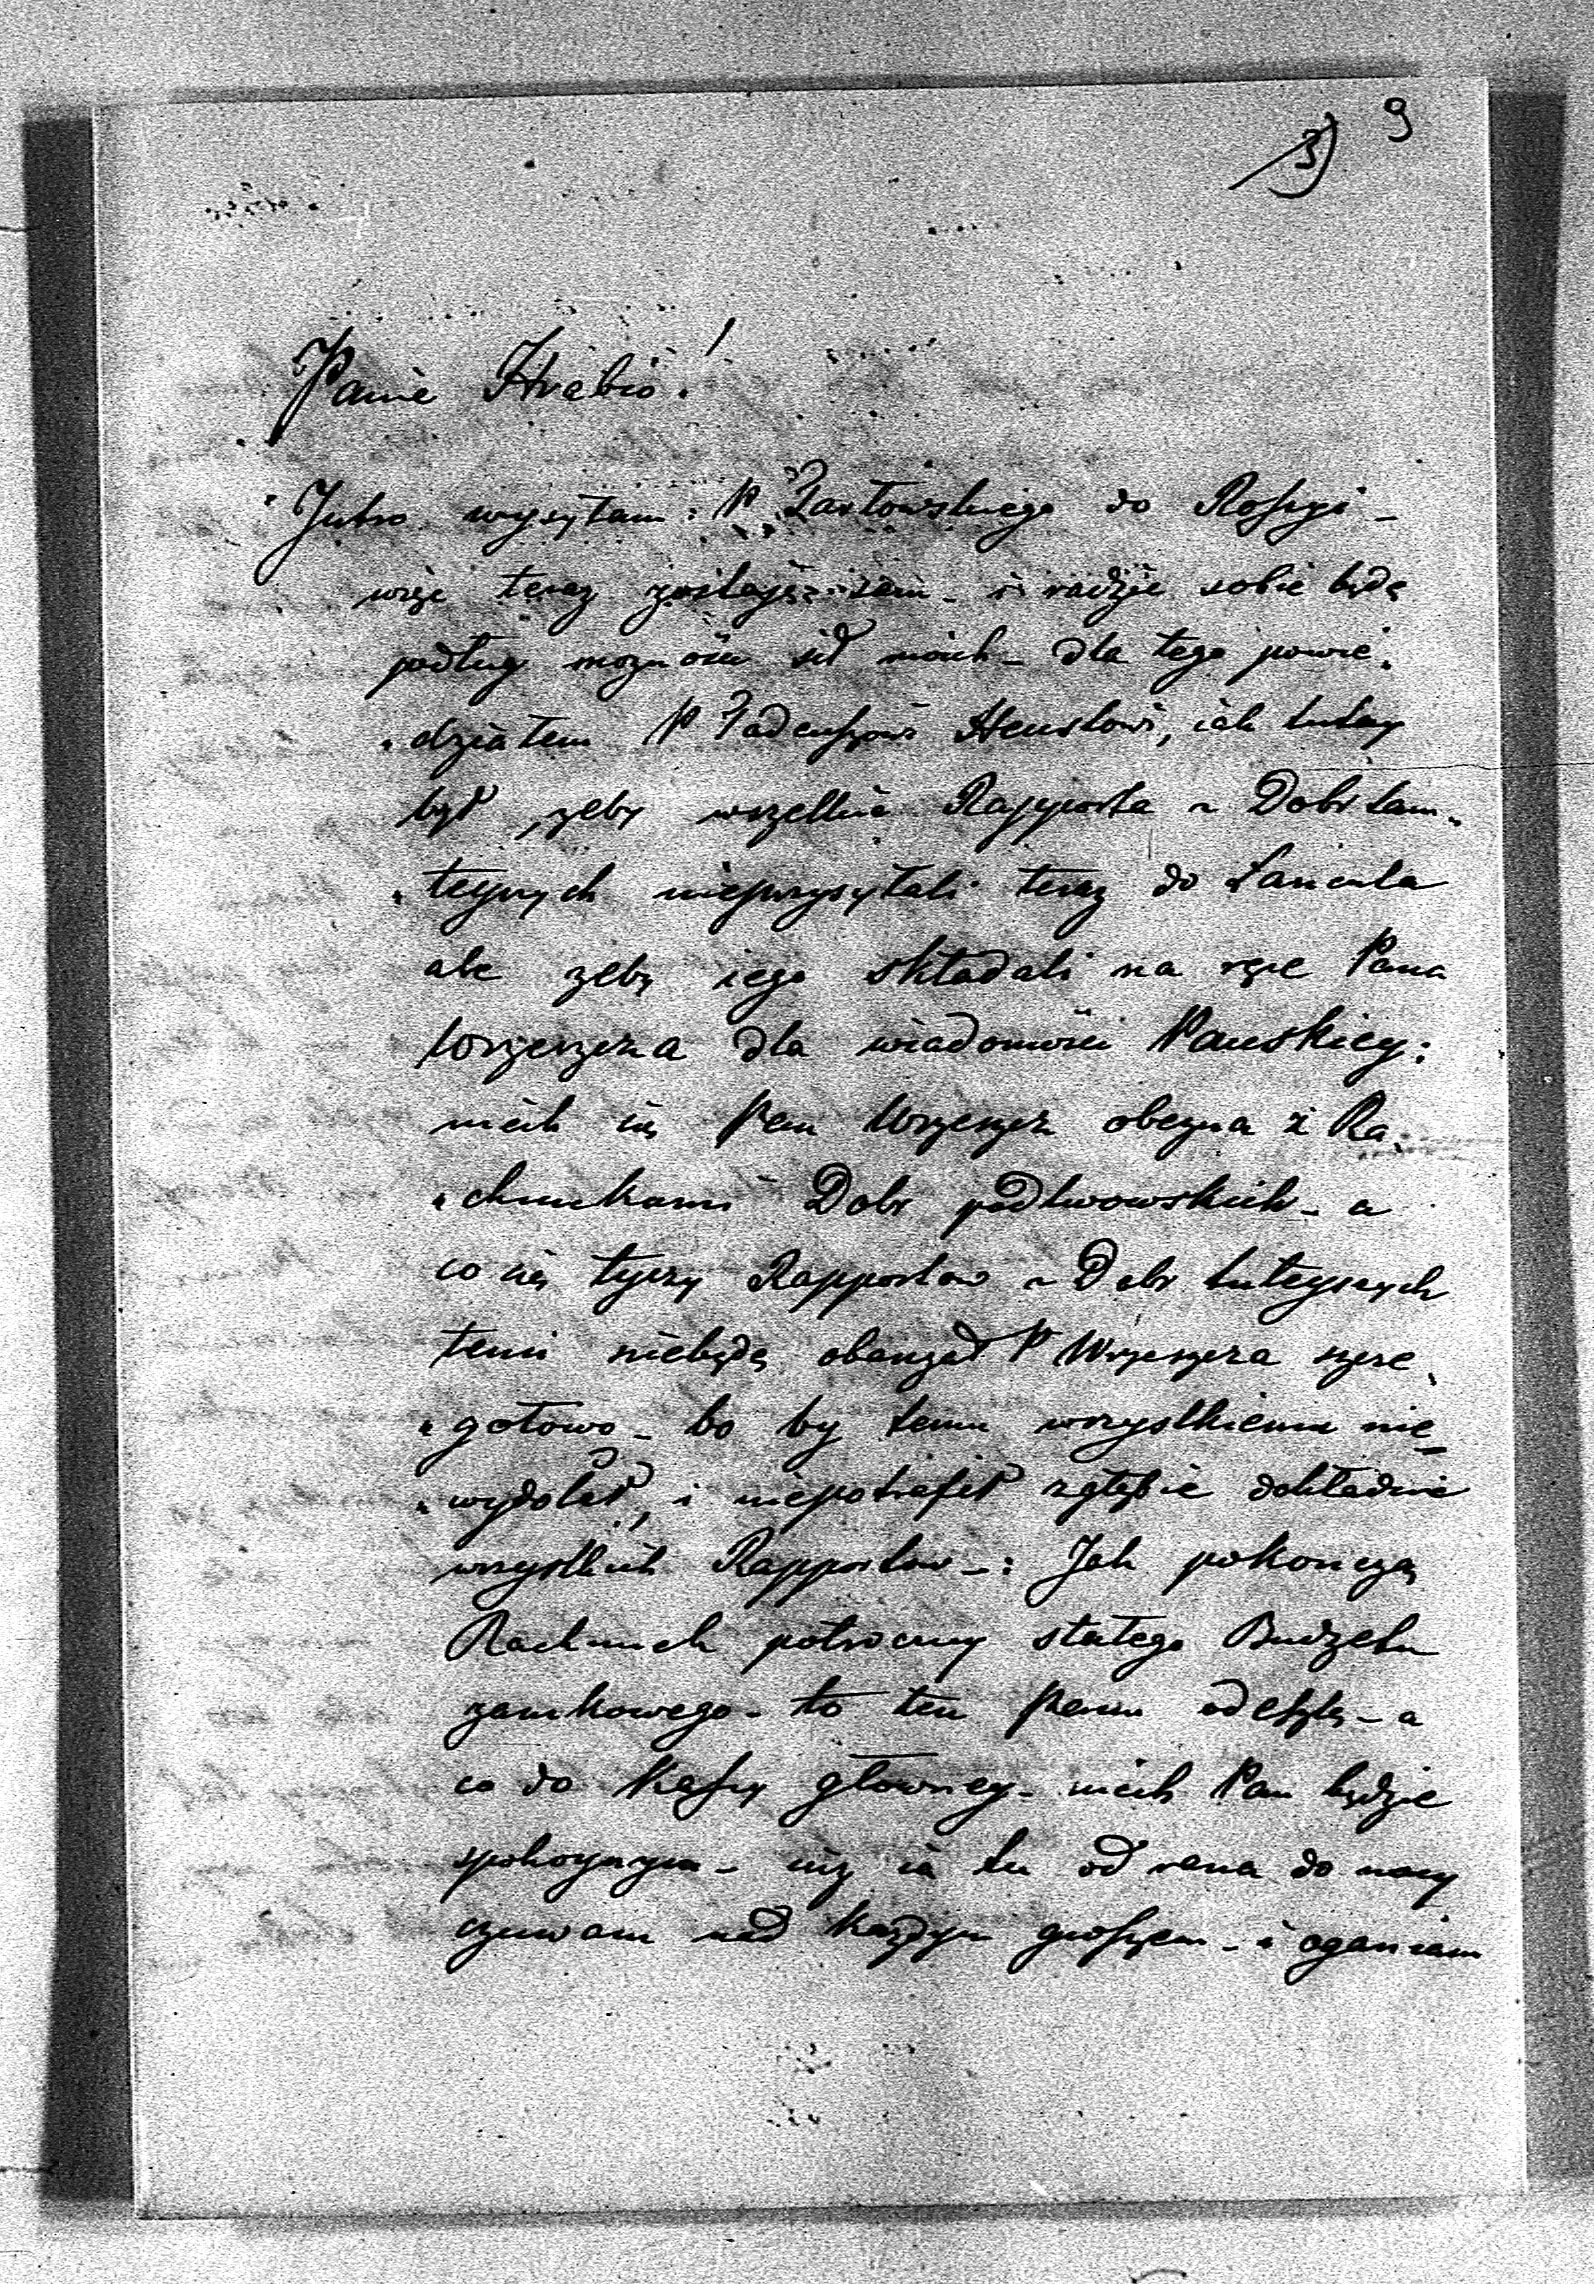 9
3)
Panie Hrabio!
Jutro wysyłam P. Żarłowskiego do Rossyi –
więc teraz zostaję sam – i radzić sobie będę
podług możności sił moich – dla tego powie,
„działem P Tadeuszowi Heuslowi, iak tutay
był, zeby wszelkie Rapporta z Dobr tam„
„teyszych nieprzysyłali teraz do Łancuta
ale zeby iego składali na ręce Pana
Wrzeszcza dla wiadomości Pańskiey:
niech się Pan Wrzeszcz obezna z Ra„
„chunkami Dobr podlwowskich – a
co się tyczy Rapportow z Dobr tuteyszych
temi niebędę obarczał P Wrzeszcza szcze„
„gołowo – bo by temu wszystkiemu nie
„wydołał, i niepotrafił zgłębić dokładnie
wszystkich Rapportow –: Jak pokonczą
Rachunek połroczny stałego Budzetu
zamkowego – to ten Panu odeszlę – a
co do Kassy głowney – niech Pan będzie
spokoynym – iuż ia tu od rana do nocy
czuwam nad każdym groszem – i oganiam